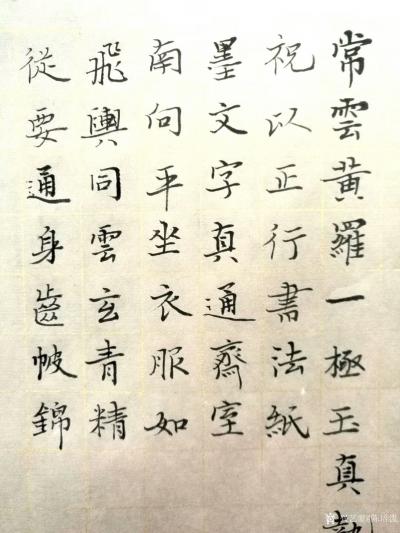 常雲黃羅一極玉真
祝以正行書法紙
墨文字真通齋室
南向平坐衣服如
飛輿同雲玄青精
從要通身齒帔錦